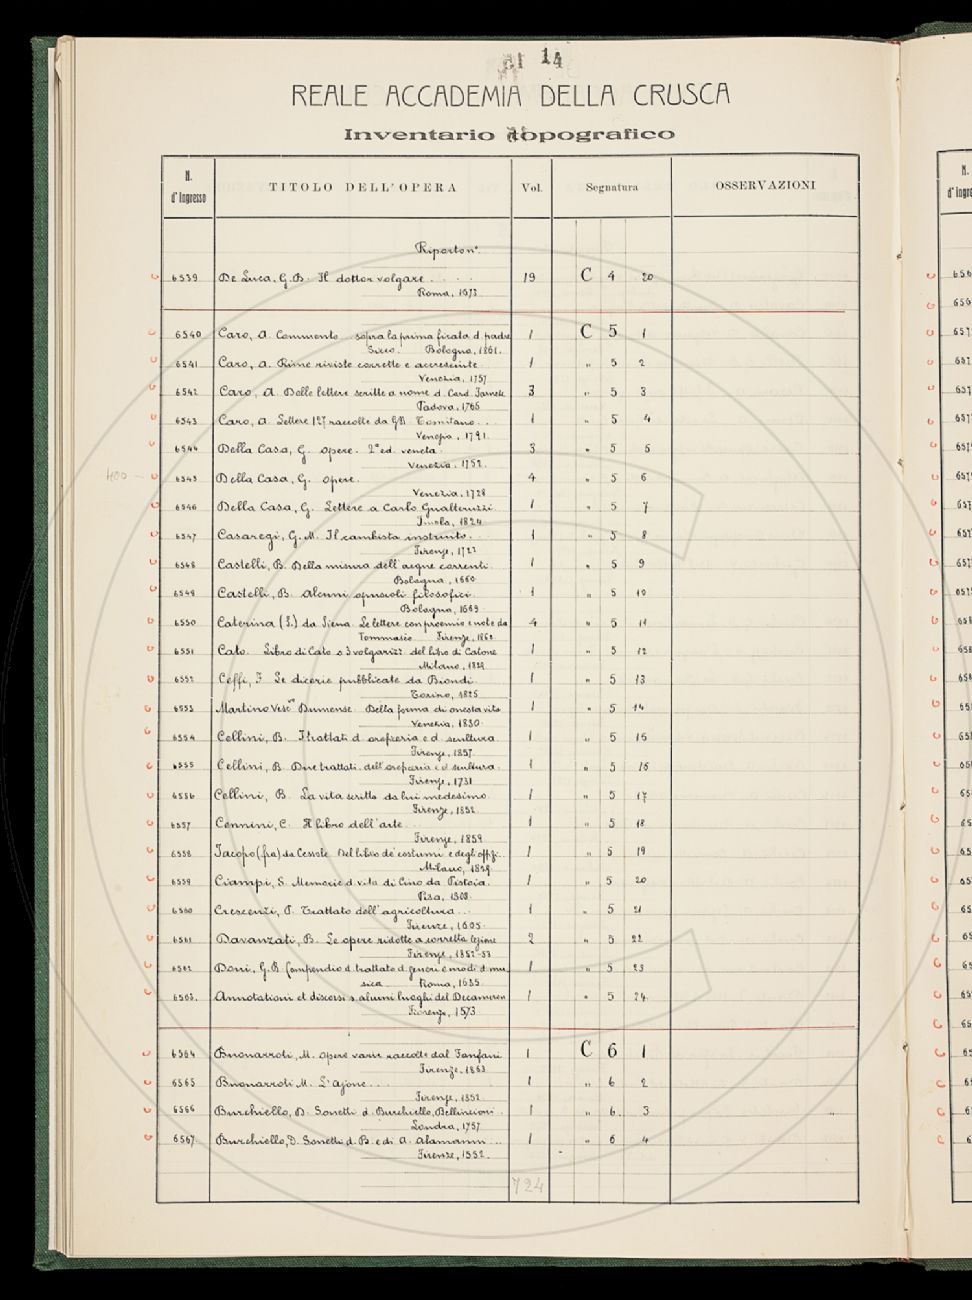 14
REALE ACCADEMIA DELLA CRUSCA
Inventario topografico
N. d'Ingresso TITOLO DELL'OPERA Vol. Segnatura OSSERVAZIONI
Riporton.
6539 De Luca, G.B. Il dottor volgare . . . . 19 C 4 20
Roma, 1673
6540 Caro, A. Commento .. sopra la prima ficata d. padre 1 C 5 1
Siceo. Bologna, 1861.
6541 Caro, A. Rime riviste corrette e accresciute. 1 " 5 2
Venezia, 1757
6542 Caro, A. Delle lettere scritte a nome d. Card. Farnese 3 " 5 3
Padova, 1765
6543 Caro, A. Lettere 127 raccolte da G.B. Tomitano . . . 1 " 5 4
Venezia, 1791.
6544 Della Casa, G. Opere. 2ª ed. veneta. 3 " 5 5
Venezia, 1752.
400 - 6545 Della Casa, G. Opere. 4 " 5 6
Venezia, 1728
6546 Della Casa, G. Lettere a Carlo Gualteruzzi 1 " 5 7
Imola, 1824
6547 Casaregi, G.M. Il cambista instruito. . 1 " 5 8
Firenze, 1723
6548 Castelli, B. Della misura dell'acque correnti. 1 " 5 9
Bologna, 1660
6549 Castelli, B. Alcuni opuscoli filosofici. 1 " 5 10
Bologna, 1669
6550 Caterina (S.) da Siena. Le lettere con proemio e note da 4 " 5 11
Tommaseo Firenze, 1860
6551 Cato. Libro di Cato o 3 volgarizz. del libro di Catone 1 " 5 12
Milano, 1829
6552 Ceffi, F. Le dicerie pubblicate da Biondi. 1 " 5 13
Torino, 1825
6553 Martino Vescvo Dumense. Della forma di onesta vita 1 " 5 14
Venezia, 1830.
6554 Cellini, B. I trattati d. oreficeria e d. scultura. 1 " 5 15
Firenze, 1857.
6555 Cellini, B. Due trattati. dell'oreficeria e d. scultura. 1 " 5 16
Firenze, 1731
6556 Cellini, B. La vita scritta da lui medesimo. 1 " 5 17
Firenze, 1852.
6557 Cennini, C. Il libro dell'arte 1 " 5 18
Firenze, 1859
6558 Jacopo (fra) da Cessole. Del libro de' costumi e degli offizi.. 1 " 5 19
Milano, 1829.
6559 Ciampi, S. Memorie d. vita di Cino da Pistoia. 1 " 5 20
Pisa, 1808.
6560 Crescenzi, P. Trattato dell'agricoltura . . . 1 " 5 21
Firenze, 1605.
6561 Davanzati, B. Le opere ridotte a corretta lezione 2 " 5 22
Firenze, 1852-53
6562 Doni, G.B. Compendio d. trattato d. generi e modi d. mu 1 " 5 23
sica Roma, 1635.
6563. Annotationi et discorsi s. alcuni luoghi del Decameron 1 " 5 24
Fiorenza, 1573
6564 Buonarroti, M. Opere varie raccolte dal Fanfani 1 C 6 1
Firenze, 1863
6565 Buonarroti M. L'Ajone. . . 1 " 6 2
Firenze, 1852
6566 Burchiello, D. Sonetti d. Burchiello, Bellincioni . 1 " 6. 3
Londra, 1757
6567. Burchiello, D. Sonetti d. B. e di A. Alamanni . . . 1 " 6 4
Firenze, 1552.
724